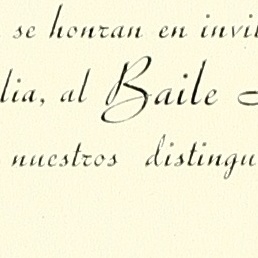 se honran en invi
lia, al Baile
nuestros distingu